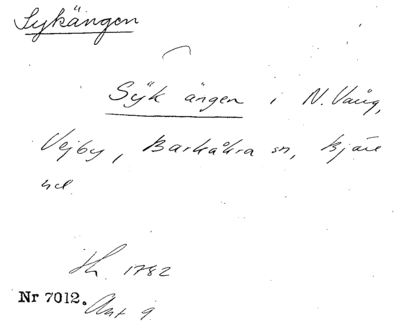 Sykängen
Sÿk ängen i N. Vång,
Vejby, Barkåkra sn, Bjäre
hd.
Sh. 1782
Nr 7012. Akt 9